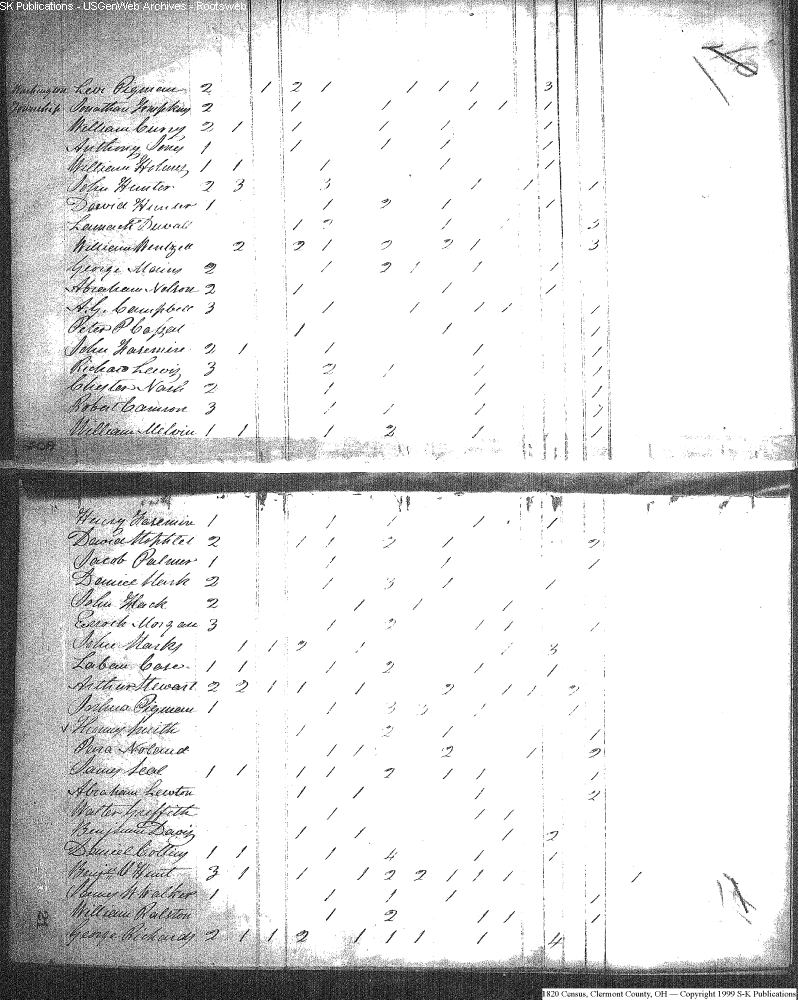 SK Publications - USGenWeb Archives - Rootsweb
Washington Levi Pigman 2 1 2 1 1 1 1 3
Township Jonathan Hopkins 2 1 1 1 1 1
William Curry 2 1 1 1 1 1
Anthony Jones 1 1 1 1 1
William Holmes 1 1 1 1 1
John Hunter 2 3 3 1 1 1
David Hunter 1 1 2 1 1
Duvall 1 2 1 3
William Wentzell 2 2 1 2 2 1 3
George Mains 2 1 2 1 1 1
Abraham Nelson 2 1 1 1
A.G. Campbell 3 1 1 1 1 1
Peter P 1 1 1
John 2 1 1 1 1
Richard Lewis 3 2 1 1 1
Chester Nash 2 1 1 1
Robert Camron 3 1 1 1 2
William Melvin 1 1 1 2 1 1
Henry 1 1 1 1 1
David 2 1 1 2 1 2
Jacob Palmer 1 1 1 1
2 1 3 1 1
John 2 1 1 1
Enoch Morgan 3 1 2 1 1 1
John Marks 1 1 2 1 1 3
Laban Case 1 1 1 2 1 1
Arthur Stewart 2 2 1 1 1 2 1 1 2
Joshua Pigman 1 1 3 3 1 1
Smith 1 2 1 1
Noland 1 1 2 1 2
James Leal 1 1 1 1 2 1 1 1
Abraham Lewton 1 1 1 2
Walter Griffith 1 1 1
Davis 1 1 1 2
Daniel Colliny 1 1 1 4 1 1
3 1 1 1 2 2 1 1 1 1
James W Walker 1 1 1 1 1
William Ralston 1 2 1 1 1
George Richards 2 1 1 2 1 1 1 1 4
1820 Census, Clermont County, OH — Copyright 1999 S-K Publications